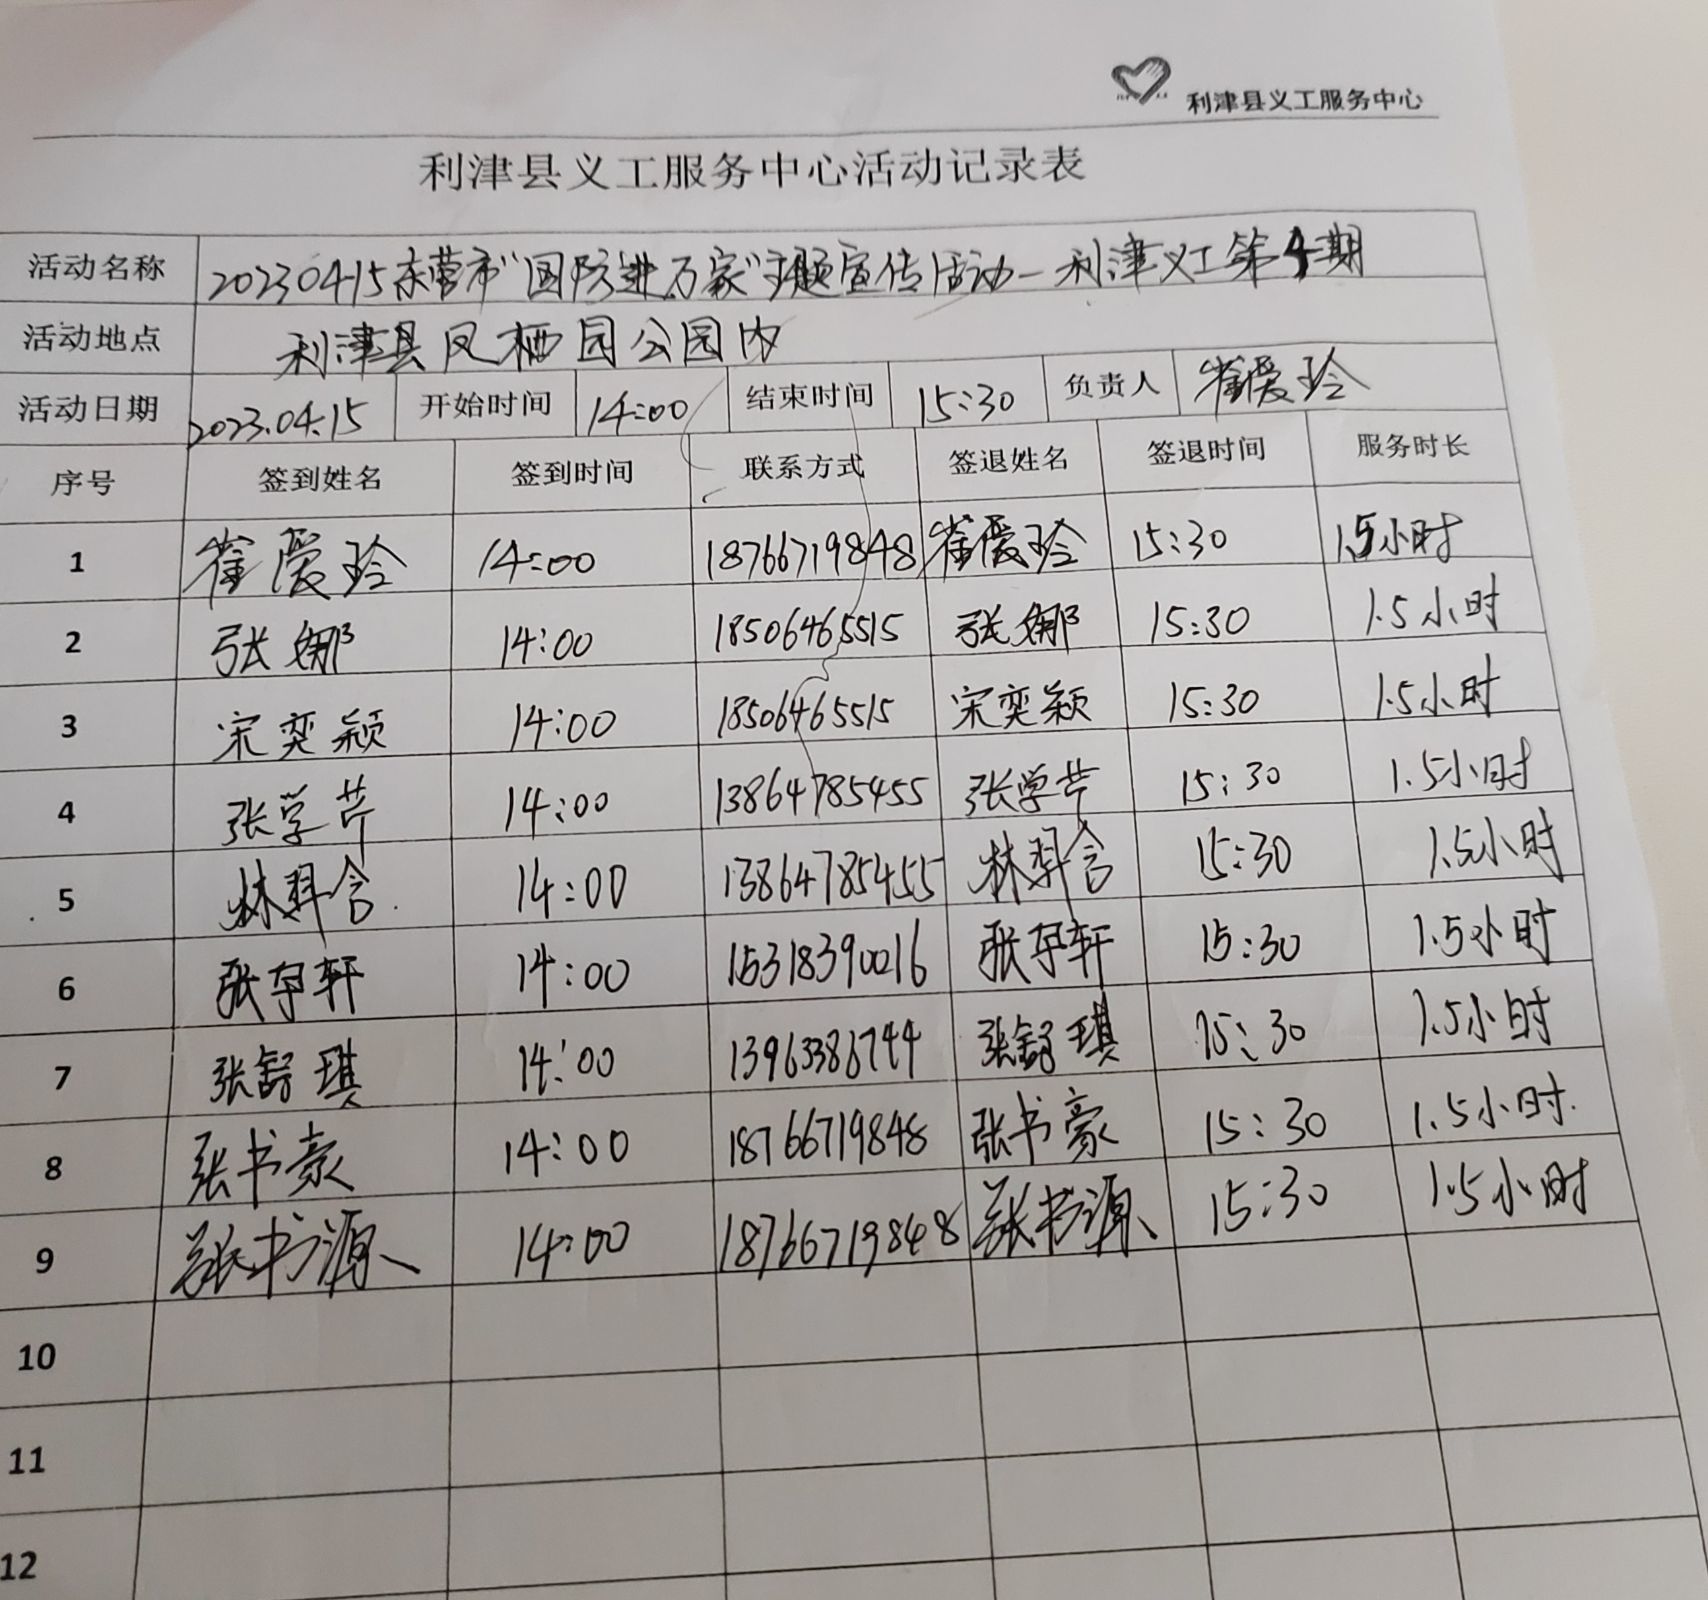 利津县义工服务中心
利津县义工服务中心活动记录表
活动名称 20230415东营市"国防进万家"主题宣传活动—利津义工第4期
活动地点 利津县凤栖园公园内
活动日期 2023.04.15 开始时间 14:00 结束时间 15:30 负责人 崔爱玲
序号 签到姓名 签到时间 联系方式 签退姓名 签退时间 服务时长
1 崔爱玲 14:00 18766719848 崔爱玲 15:30 1.5小时
2 张娜 14:00 18506465515 张娜 15:30 1.5小时
3 宋奕颖 14:00 18506465515 宋奕颖 15:30 1.5小时
4 张学芹 14:00 13864785455 张学芹 15:30 1.5小时
5 林羿含 14:00 13864785455 林羿含 15:30 1.5小时
6 张孕轩 14:00 15318390016 张孕轩 15:30 1.5小时
7 张舒琪 14:00 13963386744 张舒琪 15:30 1.5小时
8 张书豪 14:00 18766719848 张书豪 15:30 1.5小时
9 张书源 14:00 18766719848 张书源 15:30 1.5小时
10
11
12